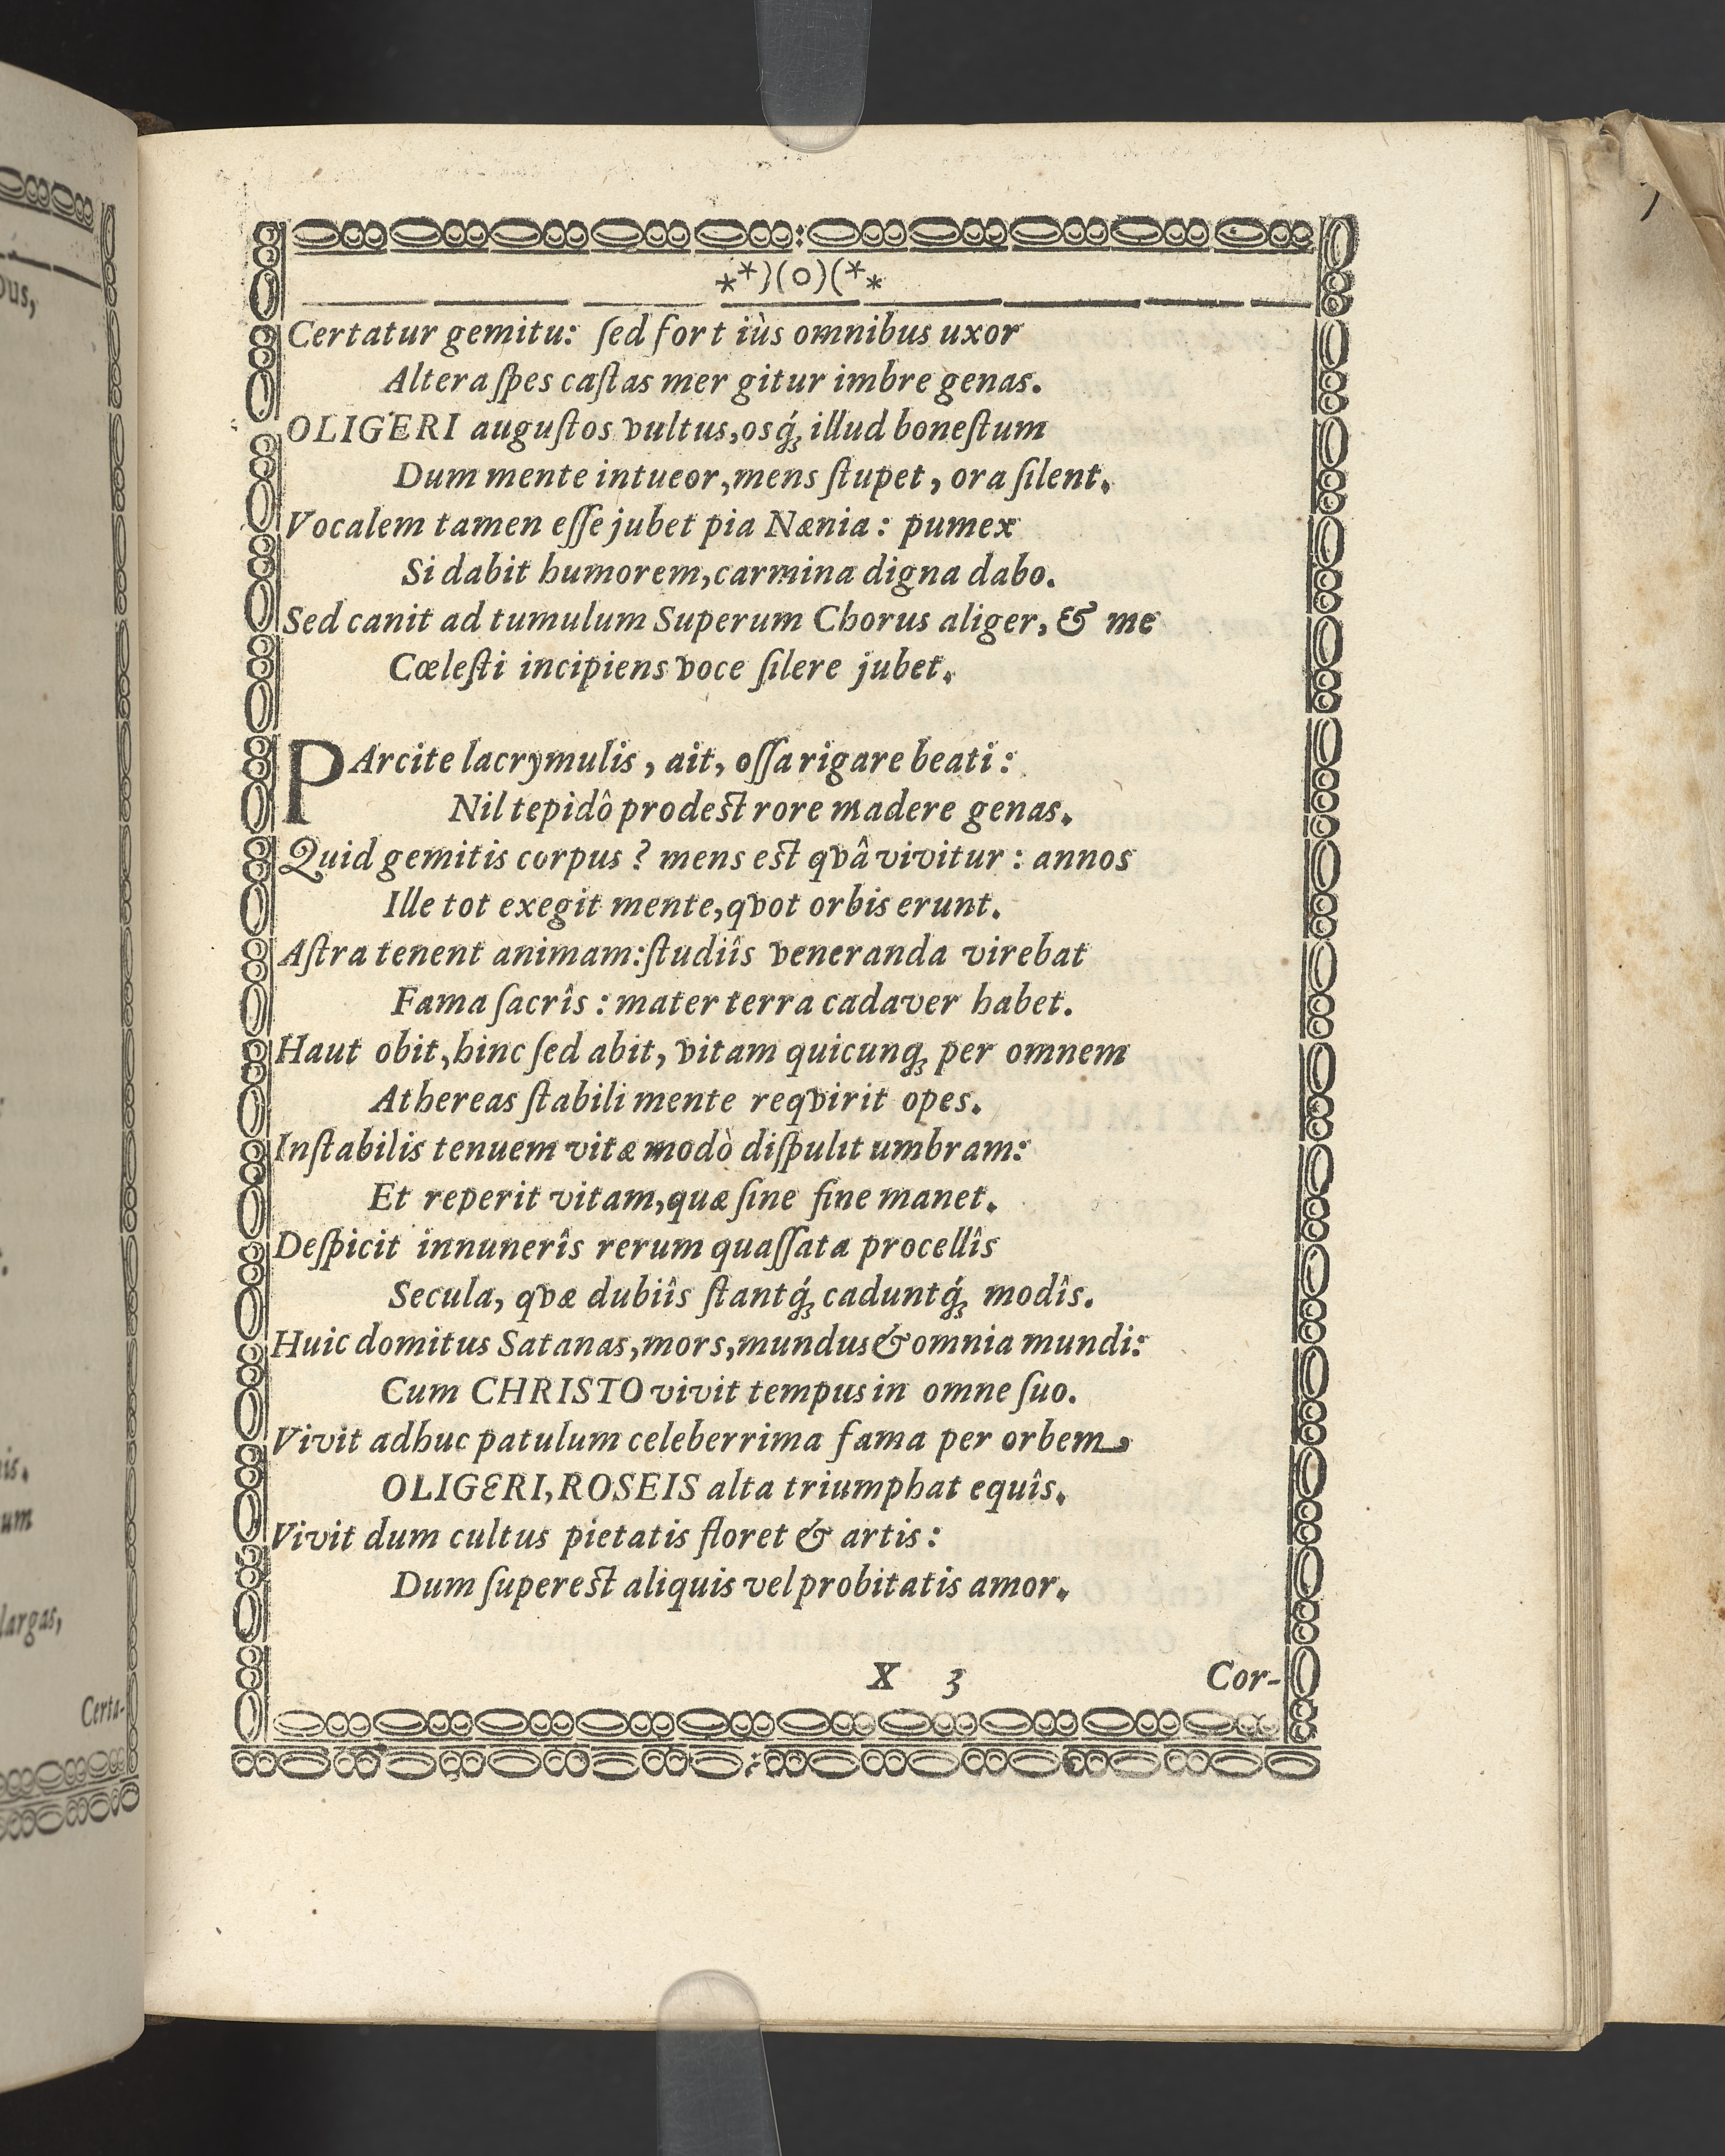 **)(o)(**
Certatur gemitu: ſed fort iùs omnibus uxor
Altera ſpes caſtas mer gitur imbre genas.
OLIGERI auguſtos vultus, osq́ꝫ illud honeſtum
Dum mente intueor, mens ſtupet, ora ſilent.
Vocalem tamen eſſe jubet pia Nænia: pumex
Si dabit humorem, carmina digna dabo.
Sed canit ad tumulum Superum Chorus aliger, & me
Cœleſti incipiens voce ſilere jubet.
PArcite lacrymulis, ait, oſſa rigare beati:
Nil tepidô prodest rore madere genas.
Quid gemitis corpus? mens est qvâ vivitur: annos
Ille tot exegit mente, qvot orbis erunt.
Aſtra tenent animam: ſtudiîs veneranda virebat
Fama ſacrîs: mater terra cadaver habet.
Haut obit, hinc ſed abit, vitam quicunqꝫ per omnem
Athereas ſtabili mente reqvirit opes.
Inſtabilis tenuem vitæ modò diſpulit umbram:
Et reperit vitam, quæ ſine fine manet.
Deſpicit innunerîs rerum quaſſata procellîs
Secula, qvæ dubiîs ſtantq́ꝫ caduntq́ꝫ modîs.
Huic domitus Satanas, mors, mundus & omnia mundi:
Cum CHRISTO vivit tempus in omne ſuo.
Vivit adhuc patulum celeberrima fama per orbem,
OLIGERI, ROSEIS alta triumphat equîs.
Vivit dum cultus pietatis floret & artis:
Dum ſuperest aliquis vel probitatis amor.
X 3 Cor-
is.
um
largas,
Certa-